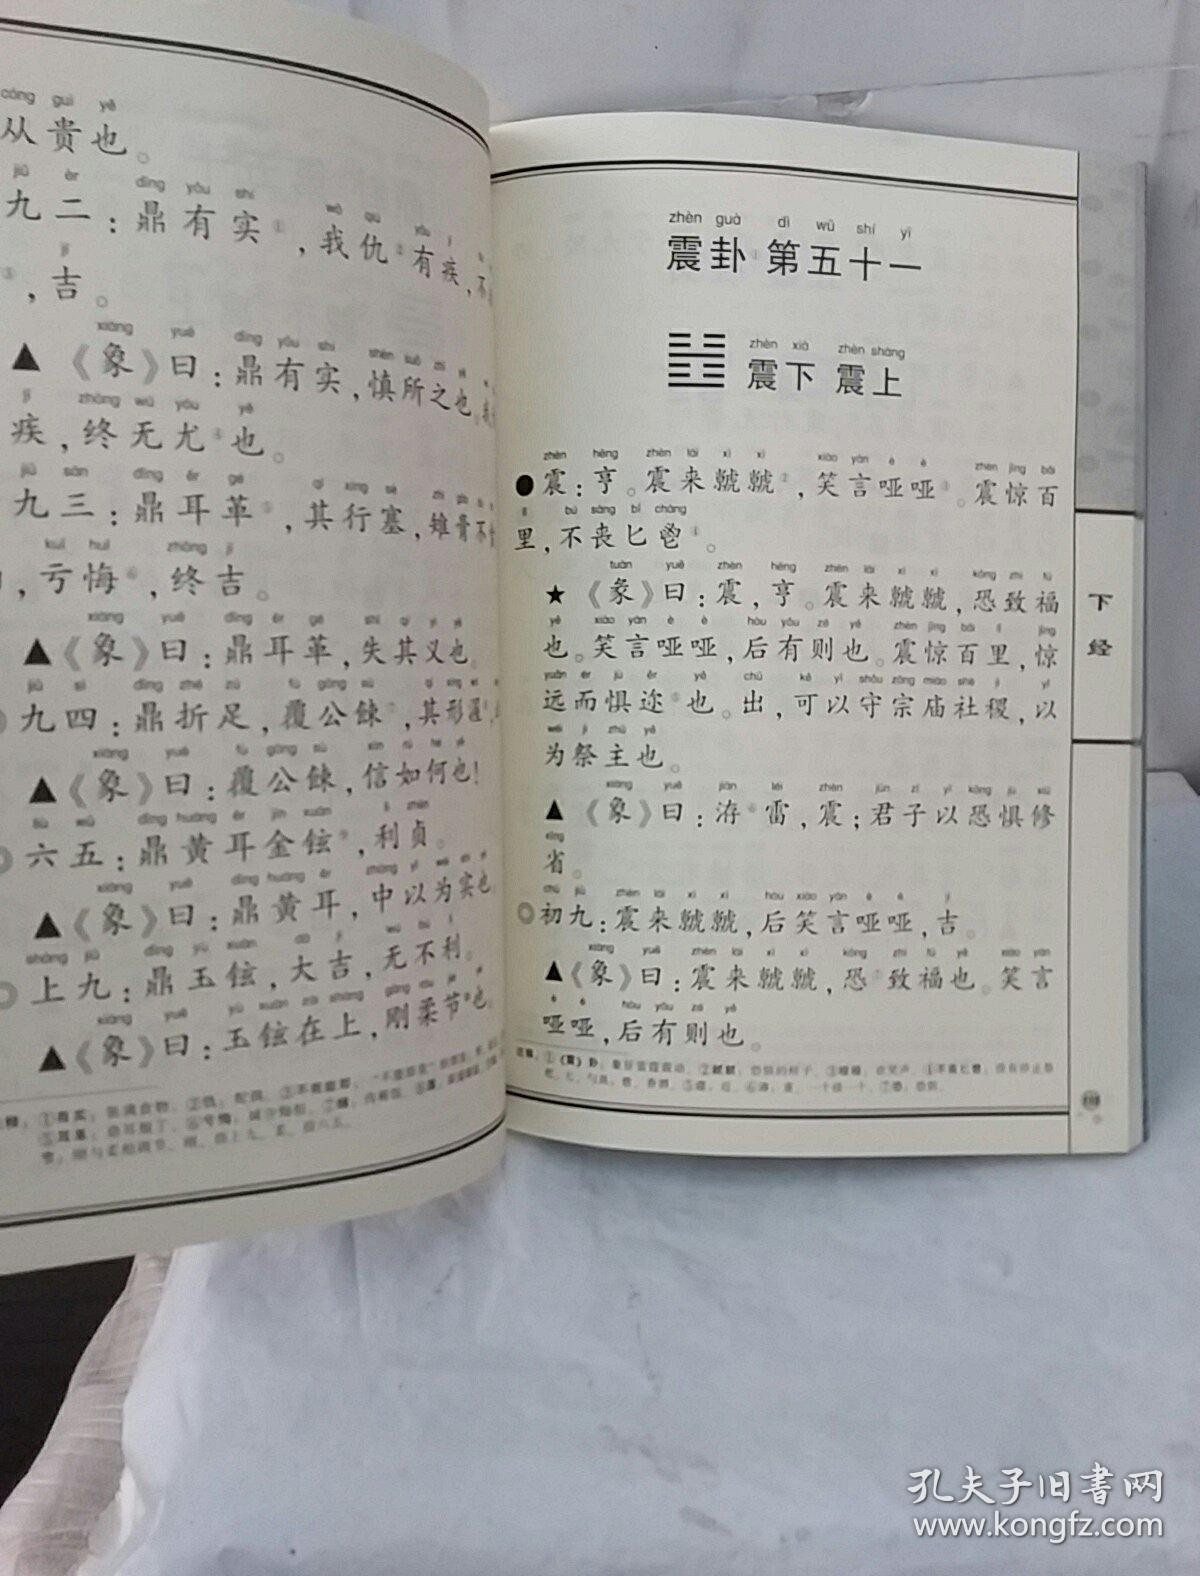 cóng guì yě
从贵也。
jiǔ èr dǐng yǒu shí wǒ qiú yǒu jí
九二：鼎有实①，我仇②有疾，不
jí
③，吉。
xiàng yuē dǐng yǒu shí shèn suǒ zhī yě
▲《象》曰：鼎有实，慎所之也。
jí zhōng wú yóu yě
疾，终无尤④也。
jiǔ sān dǐng ěr gé qí xíng sè zhì
九三：鼎耳革⑤，其行塞，雉膏不
kuī huǐ zhōng jí
，亏悔⑥，终吉。
xiàng yuē dǐng ěr gé shī qí yì yě
▲《象》曰：鼎耳革，失其义也。
jiǔ sì dǐng zhé zú fù gōng sù qí xíng wò
九四：鼎折足，覆公餗⑦，其形渥
xiàng yuē fù gōng sù xìn rú hé yě
▲《象》曰：覆公餗，信如何也！
liù wǔ dǐng huáng ěr jīn xuàn lì zhēn
六五：鼎黄耳金铉⑨，利贞。
xiàng yuē dǐng huáng ěr zhōng yǐ wéi shí yě
▲《象》曰：鼎黄耳，中以为实也。
shàng jiǔ dǐng yù xuàn dà jí wú bù lì
上九：鼎玉铉，大吉，无不利。
xiàng yuē yù xuàn zài shàng gāng róu jié yě
▲《象》曰：玉铉在上，刚柔节也。
zhèn guà dì wǔ shí yī
震卦① 第五十一
zhèn xià zhèn shàng
震下 震上
zhèn hēng zhèn lái xì xì xiào yán è è zhèn jīng bǎi
●震：亨。震来虩虩②，笑言哑哑③。震惊百
lǐ bú sàng bǐ chàng
里，不丧匕鬯④。
tuàn yuē zhèn hēng zhèn lái xì xì kǒng zhì fú
★《彖》曰：震，亨。震来虩虩，恐致福
yě xiào yán è è hòu yǒu zé yě zhèn jīng bǎi lǐ jīng
也。笑言哑哑，后有则也。震惊百里，惊
yuǎn ér jù ěr yě chū kě yǐ shǒu zōng miào shè jì yǐ
远而惧迩⑤也。出，可以守宗庙社稷，以
wéi jì zhǔ yě
为祭主也。
xiàng yuē jiàn léi zhèn jūn zǐ yǐ kǒng jù xiū
▲《象》曰：洊⑥雷，震；君子以恐惧修
xǐng
省。
chū jiǔ zhèn lái xì xì hòu xiào yán è è jí
初九：震来虩虩，后笑言哑哑，吉。
xiàng yuē zhèn lái xì xì kǒng zhì fú yě xiào yán
▲《象》曰：震来虩虩，恐⑦致福也。笑言
è è hòu yǒu zé yě
哑哑，后有则也。
下经
孔夫子旧书网
www.kongfz.com